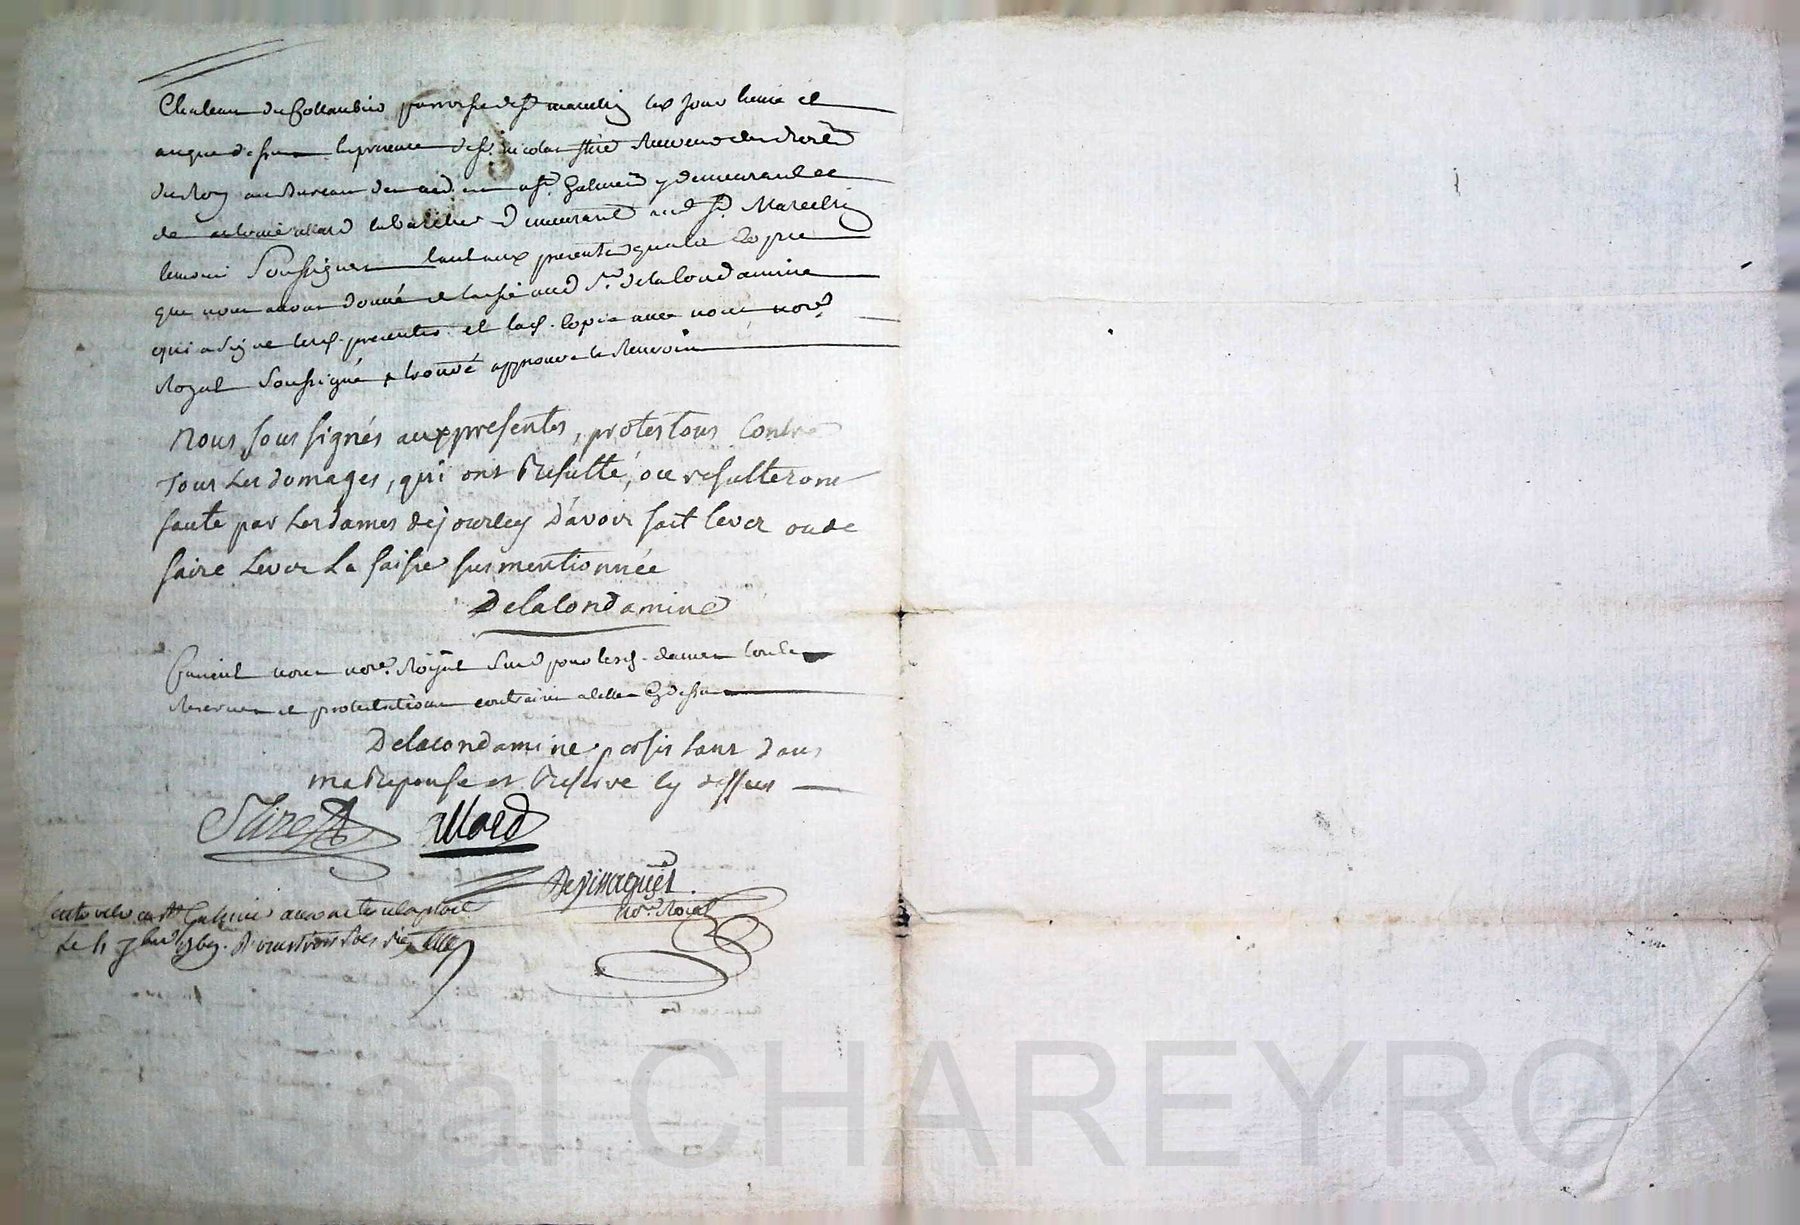 Chateau du Collaubier parroisse de St marcelin les jour heure et
an que dessus En presence de Sr. nicolas Siré Receveur des droits
du Roy au Bureau de St. Galmier y demeurant et
de antoine allard demeurant aud St. Marcelin
temoins Soussignes tant aux presentes qu'a la Copie
que nous avons donné et laissé aud Sr. de la Condamine
qui a signé lesd. presentes et lad. Copie avec nous nore.
Royal Soussigné
Nous sous signés aux presentes, protestons Contre
Tous Les domages, qui ont Resulté, ou resulteront
faute par Les dames de jourcey D'avoir fait lever ou de
faire Lever La saisie susmentionnée
Delacondamine
nous nore. Royal Sund pour lesd. dames toutes
Reserves et protestations contraires a celles Cy dessus
Delacondamine persistant dans
ma Reponse et Reserve Cy dessus
Siré allard
nore. Royal
Controlé a St Galmier
Le 11 7bre 1769.
Pascal CHAREYRON